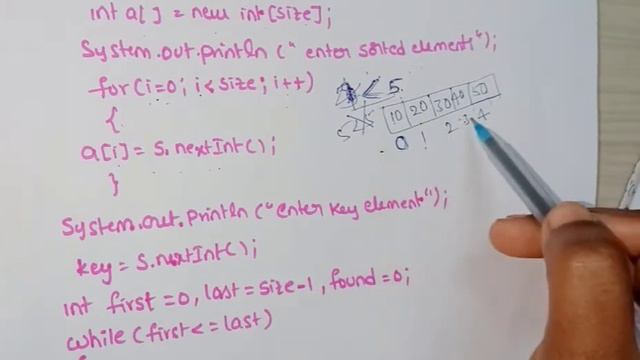 int a[] = new int[size];
System.out.println(" enter sorted elements");
for(i=0; i<size; i++)
< 5.
{
10 20 30 40 50
0 1 2 3 4
a[i] = s.nextInt();
}
System.out.println("enter key element");
key = s.nextInt();
int first=0, last=size-1, found=0;
while(first<=last)